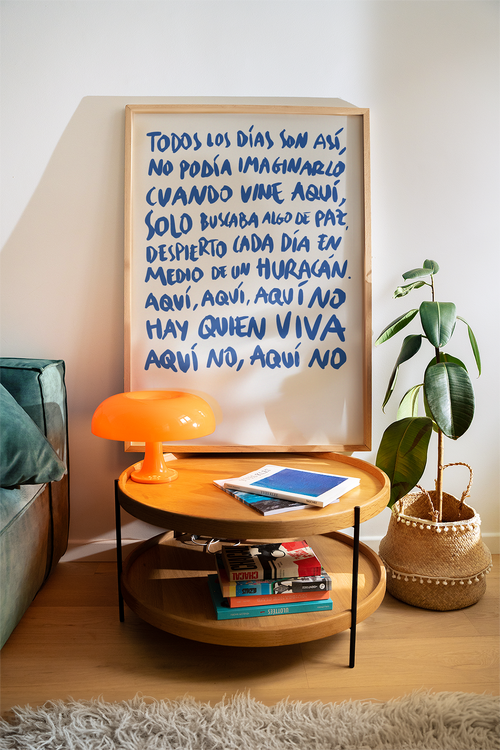 TODOS LOS DÍAS SON ASÍ,
NO PODÍA IMAGINARLO
CUANDO VINE AQUÍ,
SOLO BUSCABA ALGO DE PAZ,
DESPIERTO CADA DÍA EN
MEDIO DE UN HURACÁN.
AQUÍ, AQUÍ, AQUÍ NO
HAY QUIEN VIVA
AQUÍ NO, AQUÍ NO